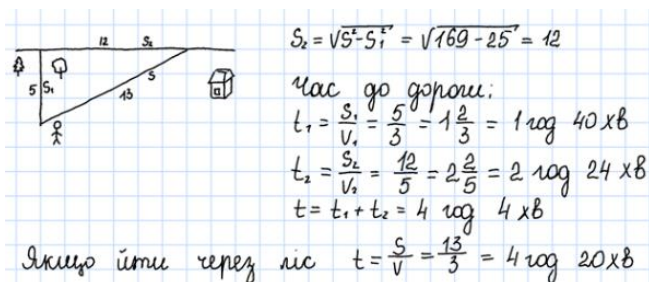 12 S₂
5 S₁
S
13
S₂ = √S²-S₁² = √169-25 = 12
Час до дороги:
t₁ = S₁/V₁ = 5/3 = 1 2/3 = 1 год 40 хв
t₂ = S₂/V₂ = 12/5 = 2 2/5 = 2 год 24 хв
t = t₁ + t₂ = 4 год 4 хв
Якщо йти через ліс t = S/V = 13/3 = 4 год 20 хв